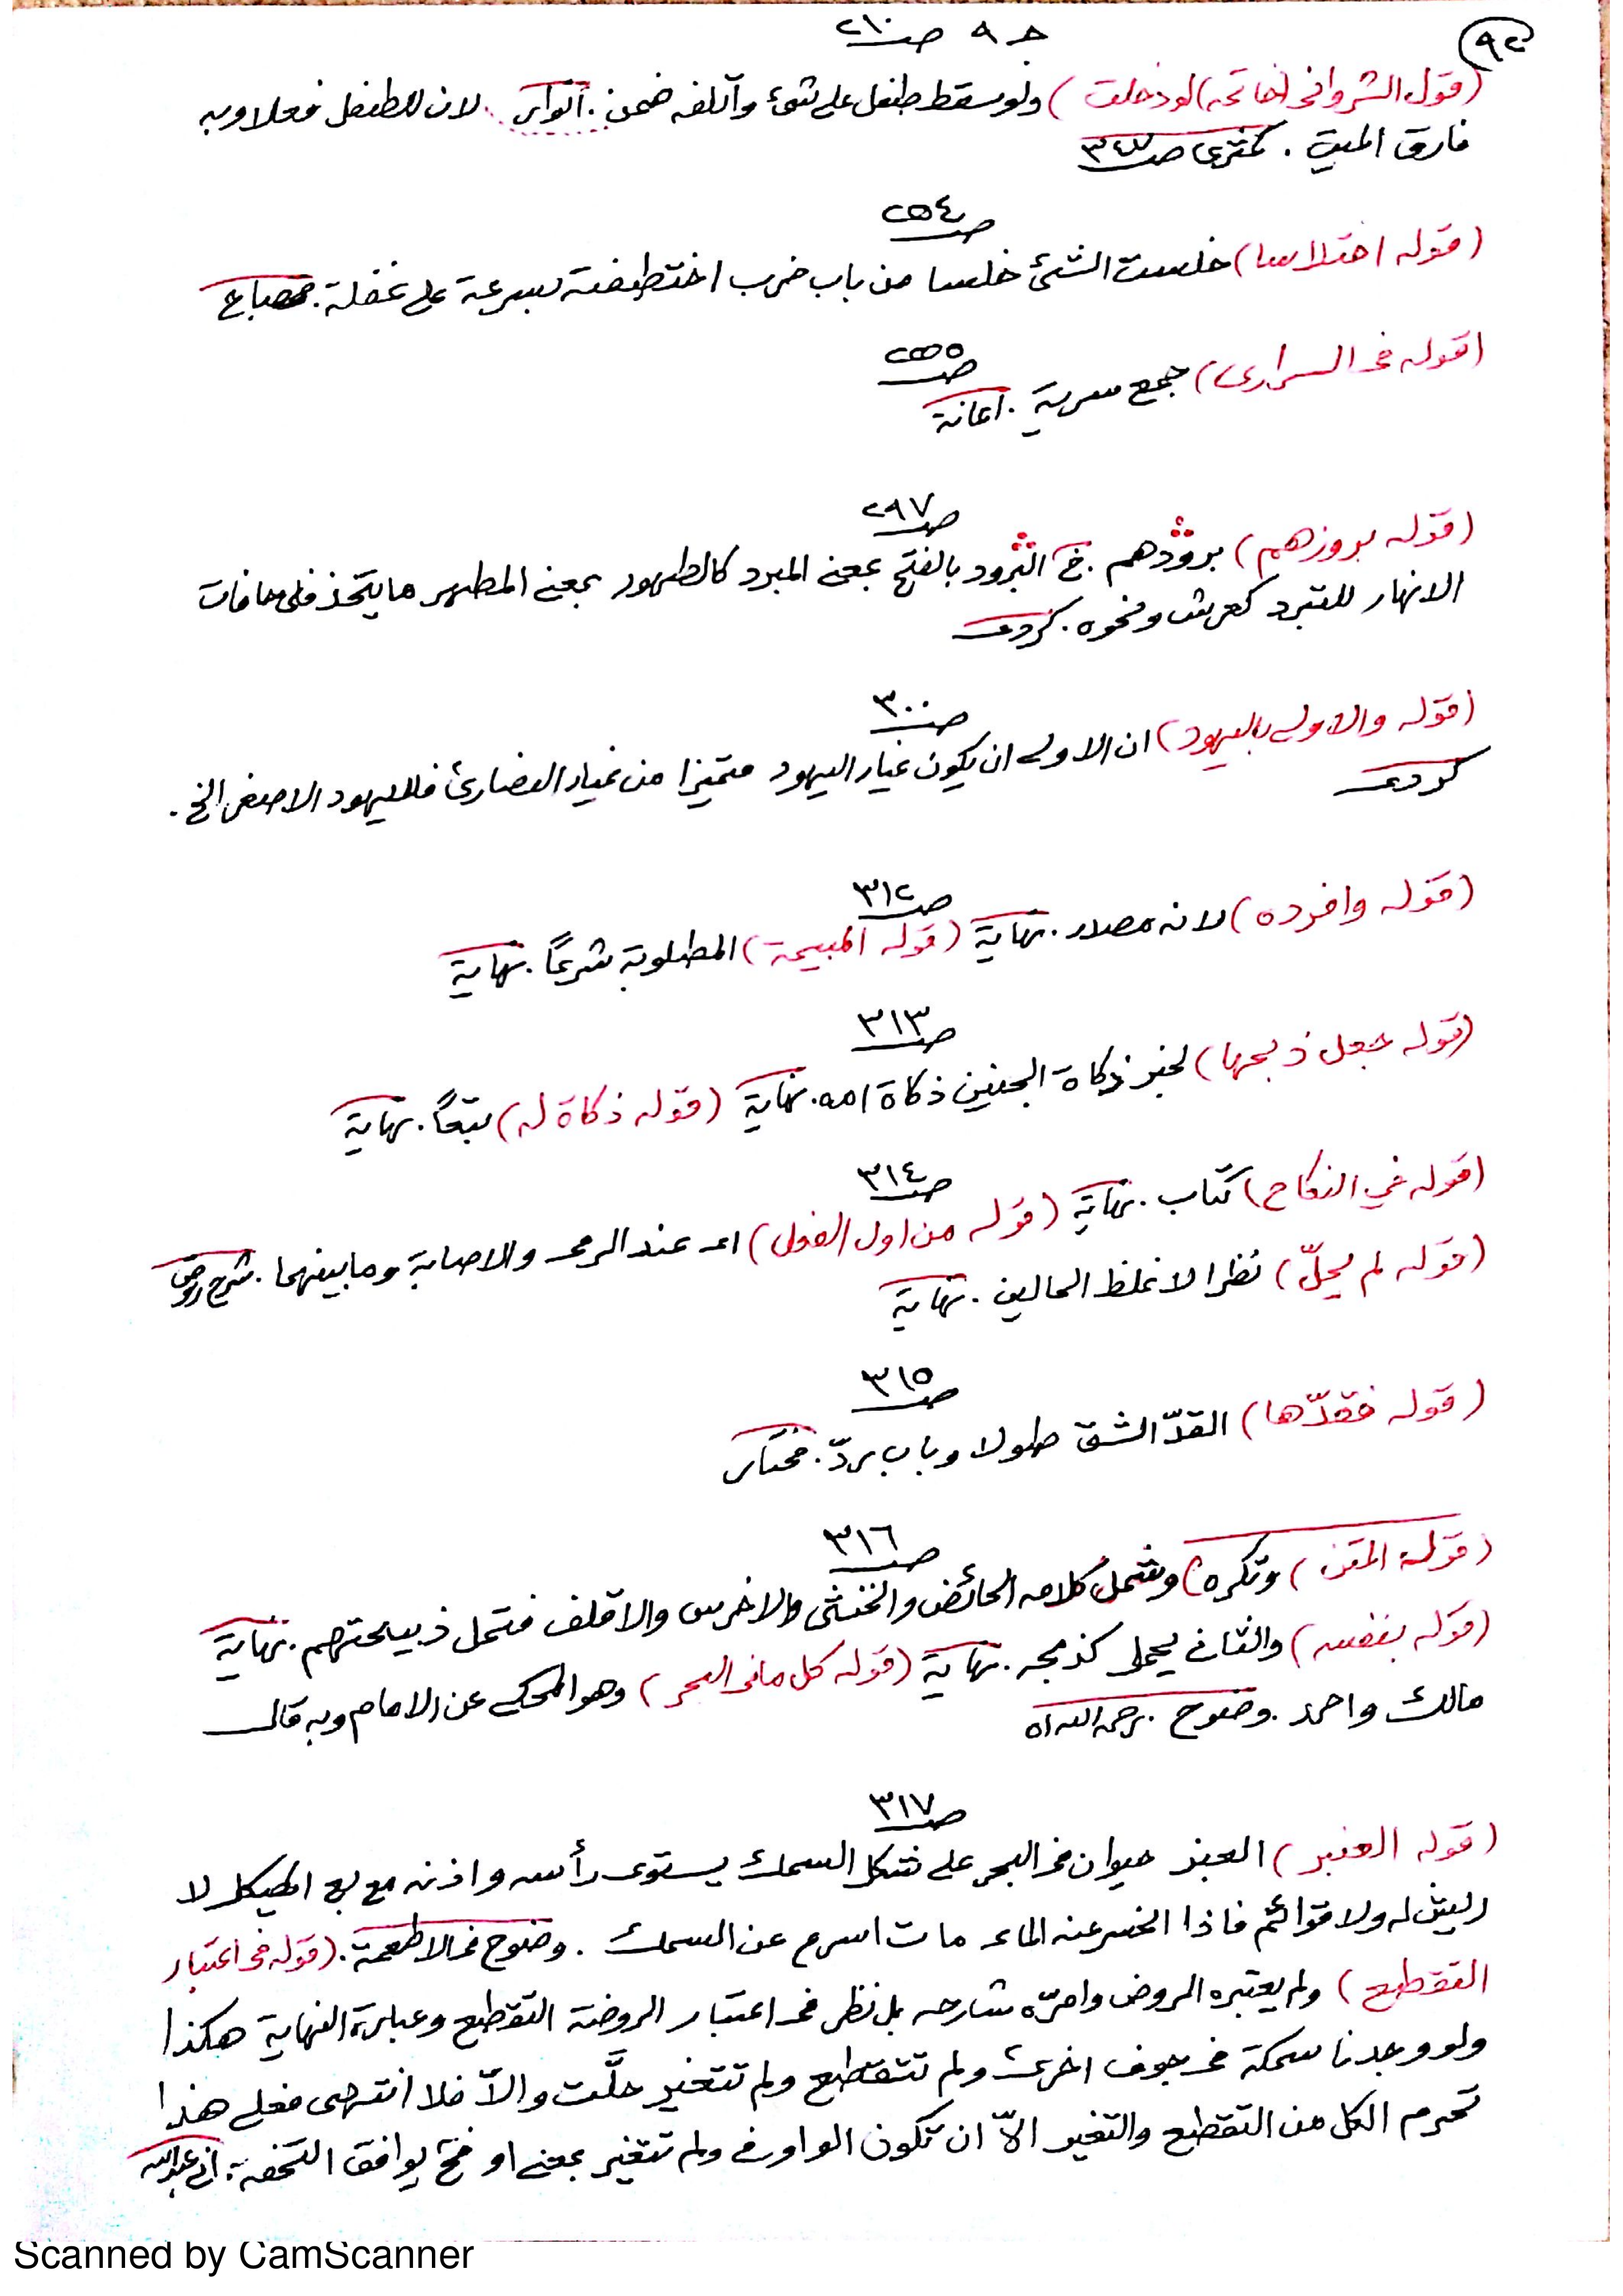 ٩٢
حـ ٩ صـ ٢١٠
(قول الشرواني خاتمة) لو دخلت) ولو سقط طفل على شئ وأتلفه ضمن. أنوار. لان للطفل فعلا وبه
فارق الميت. كمثرى صـ ٣٤٧
صـ ٢٥٤
(قوله اختلاسا) خلست الشئ خلسا من باب ضرب اختطفته بسرعة على غفلة. مصباح
صـ ٢٥٥
(قوله فى السرارى) جمع سرية. اعانة
صـ ٢٩٧
(قوله بروزهم) برودهم. خ البرود بالفتح بمعنى المبرد كالطهور بمعنى المطهر ما يتخذ على حافات
الانهار للتبرد كعرش ونحوه. كردى
صـ ٣٠٠
(قوله والاولى باليهود) ان الاولى ان يكون غيار اليهود متميزا من غيار النصارى فلليهود الاصفر الخ.
كردى
صـ ٣١٢
(قوله وافرده) لانه مصدر. نهاية (قوله المبيحة) المطلوبة شرعًا. نهاية
صـ ٣١٣
(قوله جعل ذبحها) لخبر ذكاة الجنين ذكاة امه. نهاية (قوله ذكاة له) تبعًا. نهاية
صـ ٣١٤
(قوله في النكاح) كتاب. نهاية (قوله من اول الفعل) اى عند الرمى والاصابة وما بينهما. شرح روض
(قوله لم يحلّ) نظرا لاغلظ الحالين. نهاية
صـ ٣١٥
(قوله فقدّها) القدّ الشق طولا وباب ردّ. مختار
صـ ٣١٦
(قوله المتن) وتكره) وشمل كلامه الحائض والخنثى والاخرس والاقلف فتحل ذبيحتهم. نهاية
(قوله بنفسه) والثانى يحل كذبحه. نهاية (قوله كل ما فى البحر) وهو المحكى عن الامام وبه قال
مالك واحمد. وضوح. رحمه الله اه
صـ ٣١٧
(قوله العنبر) العنبر حيوان فى البحر على شكل السمك يستوى رأسه واذنه مع الهيكل لا
ريش له ولا قوائم فاذا انحسر عنه الماء مات اسرع عن السمك. وضوح فى الاطعمة. (قوله فى اعتبار
التقطيع) ولم يعتبره الروض وامرّه شارحه بل نظر فى اعتبار الروضة التقطيع وعبارة النهاية هكذا
ولو وجدنا سمكة فى جوف اخرى ولم تتقطع ولم تتغير حلَّت والاّ فلا انتهى فعلى هذا
تحرم الكل من التقطيع والتغير الاّ ان تكون الواو فى ولم تتغير بمعنى او فح يوافق التحفة.
Scanned by CamScanner